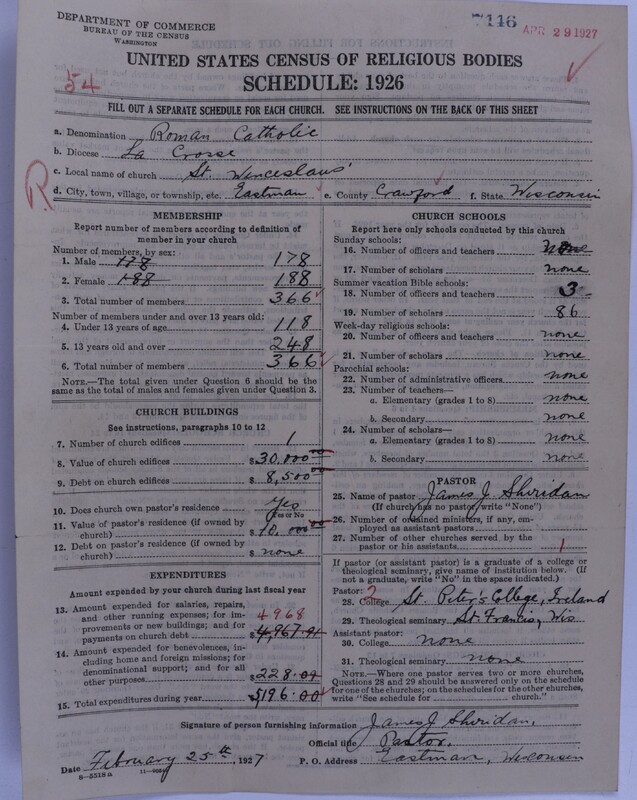 DEPARTMENT OF COMMERCE
BUREAU OF THE CENSUS
WASHINGTON
7116 APR 29 1927
UNITED STATES CENSUS OF RELIGIOUS BODIES
SCHEDULE: 1926
54
FILL OUT A SEPARATE SCHEDULE FOR EACH CHURCH. SEE INSTRUCTIONS ON THE BACK OF THIS SHEET
a. Denomination Roman Catholic
b. Diocese La Crosse
c. Local name of church St. Wenceslaus'
R
d. City, town, village, or township, etc. Eastman e. County Crawford f. State Wisconsin
MEMBERSHIP
Report number of members according to definition of
member in your church
Number of members, by sex:
1. Male 178 178
2. Female 188 188
3. Total number of members 366
Number of members under and over 13 years old:
4. Under 13 years of age 118
5. 13 years old and over 248
6. Total number of members 366
NOTE.—The total given under Question 6 should be
same as the total of males and females given under Question 3.
CHURCH BUILDINGS
See instructions, paragraphs 10 to 12
7. Number of church edifices 1
8. Value of church edifices $30,000.00
9. Debt on church edifices $8,500
10. Does church own pastor's residence Yes
(Yes or No)
11. Value of pastor's residence (if owned by
church) $10,000.00
12. Debt on pastor's residence (if owned by
church) $ none
EXPENDITURES
Amount expended by your church during last fiscal year
13. Amount expended for salaries, repairs,
and other running expenses; for im-
provements or new buildings; and for
payments on church debt 4968 $4,967.91
14. Amount expended for benevolences, in-
cluding home and foreign missions; for
denominational support; and for all
other purposes $228.09
15. Total expenditures during year $5196.00
CHURCH SCHOOLS
Report here only schools conducted by this church
Sunday schools:
16. Number of officers and teachers none
17. Number of scholars none
Summer vacation Bible schools:
18. Number of officers and teachers 3
19. Number of scholars 86
Week-day religious schools:
20. Number of officers and teachers none
21. Number of scholars none
Parochial schools:
22. Number of administrative officers none
23. Number of teachers—
a. Elementary (grades 1 to 8) none
b. Secondary none
24. Number of scholars—
a. Elementary (grades 1 to 8) none
b. Secondary none
PASTOR
25. Name of pastor James J. Sheridan
(If church has no pastor, write "None")
26. Number of ordained ministers, if any, em-
ployed as assistant pastors
27. Number of other churches served by the
pastor or his assistants 1
If pastor (or assistant pastor) is a graduate of a college or
theological seminary, give name of institution below. (If
not a graduate, write "No" in the space indicated.)
Pastor: 2
28. College St. Peter's College, Ireland
29. Theological seminary St. Francis, Wis
Assistant pastor:
30. College none
31. Theological seminary none
NOTE.—Where one pastor serves two or more churches,
Questions 28 and 29 should be answered only on the schedule
for one of the churches; on the schedules for the other churches,
write "See schedule for church."
Signature of person furnishing information James J. Sheridan.
Official title Pastor.
Date February 25th, 1927 P. O. Address Eastman, Wisconsin
8—5518a